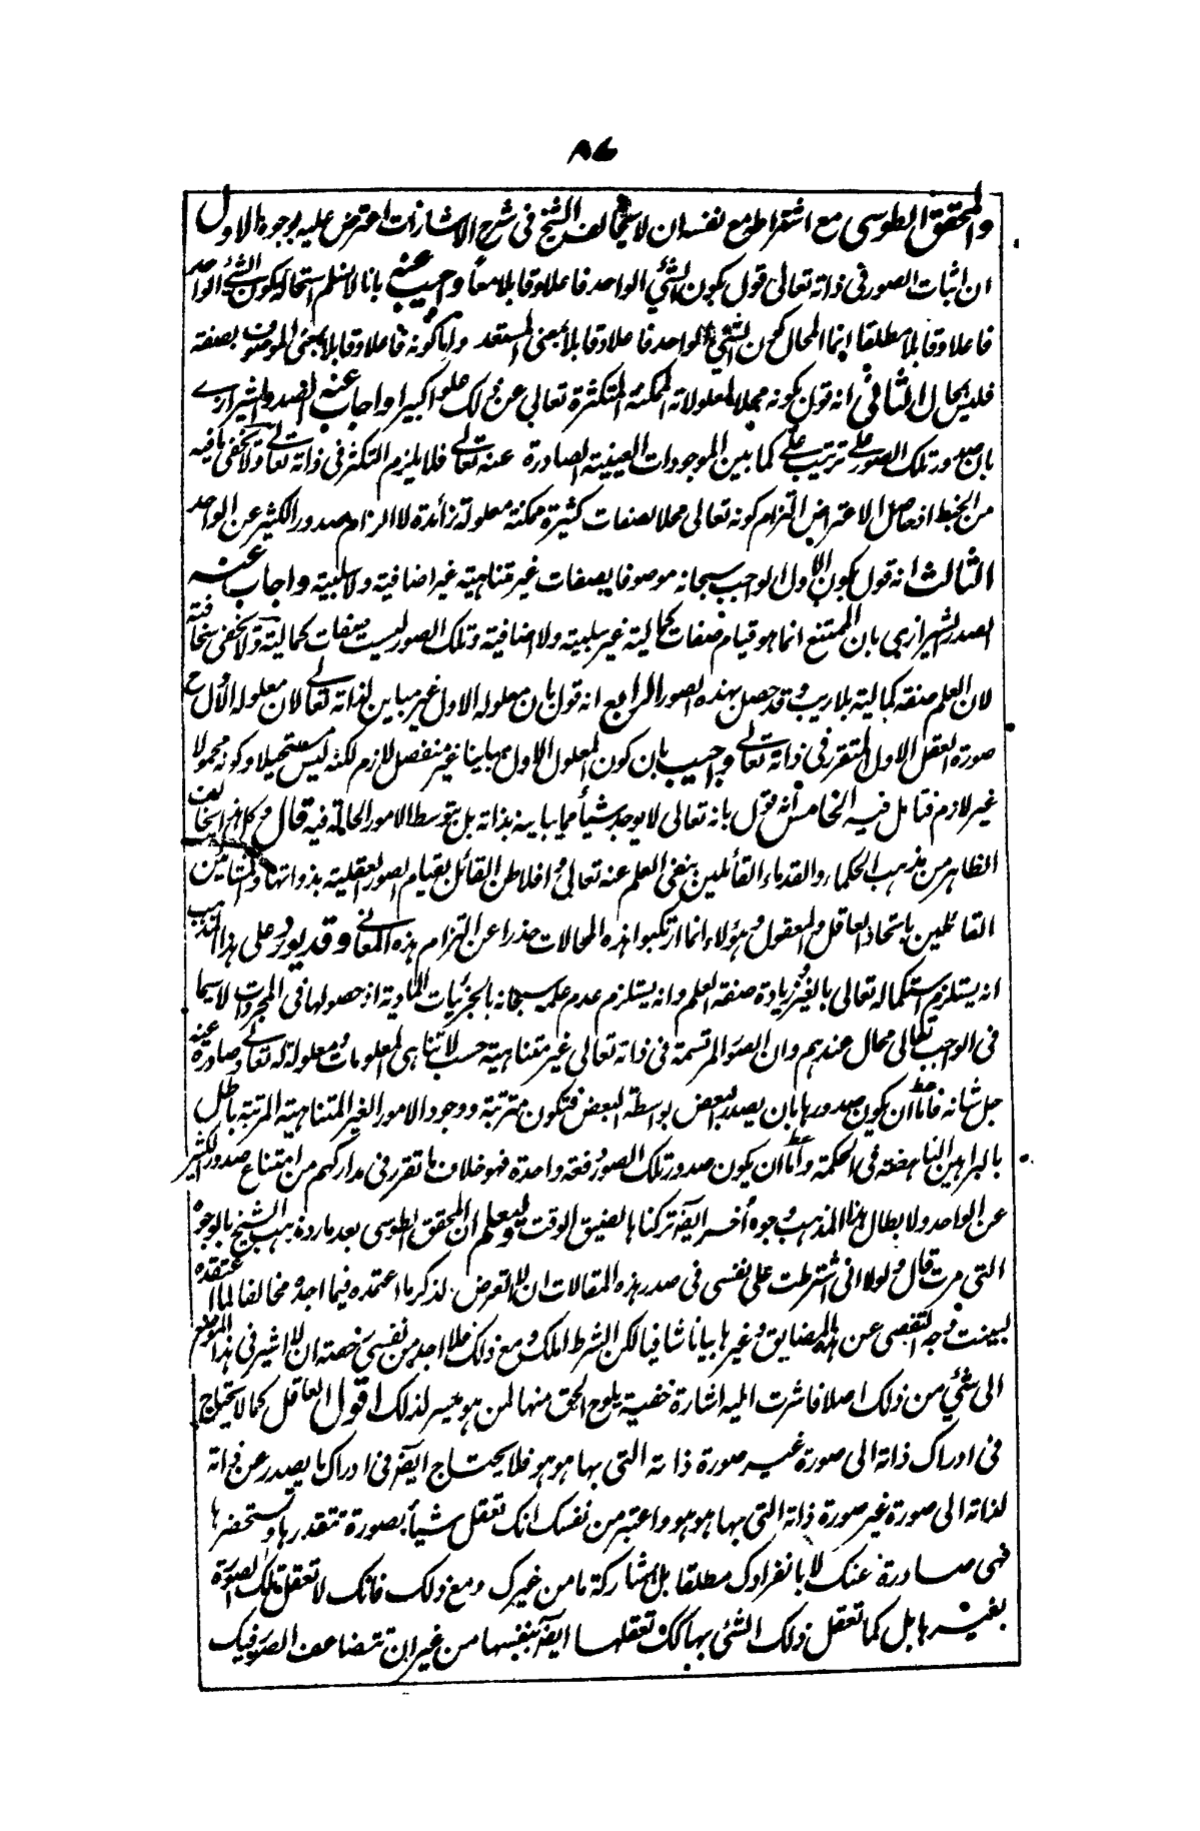 ٨٦
والمحقق الطوسى مع اشتراطه مع نفسه ان لا يخالف الشيخ فى شرح الاشارات اعترض عليه بوجوه الاول
ان اثبات الصور فى ذاته تعالى قول بكون الشئ الواحد فاعلا وقابلا معا واجيب عنه بانا لا نسلم استحالة كون الشئ الواحد
فاعلا وقابلا مطلقا انما المحال كون الشئ الواحد فاعلا وقابلا بمعنى المستعد واما كونه فاعلا وقابلا بمعنى الموصوف بصفته
فليس بمحال الثانى انه قول بكونه محلا لمعلولاته الممكنة المتكثرة تعالى عن ذلك علوا كبيرا واجاب عنه الصدر الشيرازى
بان صدور تلك الصور على ترتيب على كما بين الموجودات العينية الصادرة عنه تعالى فلا يلزم التكثر فى ذاته تعالى ولا يخفى ما فيه
من الخبط اذ حاصل الاعتراض التزام كونه تعالى محلا لصفات كثيرة ممكنة معلولة زائدة لا الزام صدور الكثير عن الواحد
الثالث انه قول بكون الاول الواجب سبحانه موصوفا بصفات غير متناهية غير اضافية ولا سلبية واجاب عنه
الصدر الشيرازى بان الممتنع انما هو قيام صفات كمالية غير سلبية ولا اضافية وتلك الصور ليست صفات كمالية ولا يخفى سخافته
لان العلم صفة كمالية بلا ريب وقد حصل بهذه الصور الرابع انه قول بان معلوله الاول غير مباين لذاته تعالى لان معلوله الاول ح
صورة العقل الاول المتقرر فى ذاته تعالى واجيب بان كون المعلول الاول مباينا غير منفصل لازم لكنه ليس مستحيلا وكونه محمولا
غير لازم فتامل فيه الخامس انه قول بانه تعالى لا يوجد شيأ مما يباينه بذاته بل بتوسط الامور الحالة فيه قال وكل هذا يخالف
الظاهر من مذهب الحكماء والقدماء القائلين بنفى العلم عنه تعالى وافلاطن القائل بقيام الصور العقلية بذواتها والمشائين
القائلين باتحاد العاقل والمعقول وهؤلاء انما ارتكبوا هذه المحالات حذرا عن التزام هذه المعانى وقد يورد على هذا المذهب
انه يستلزم استكماله تعالى بالغير وزيادة صفة العلم وانه يستلزم عدم علمه سبحانه بالجزئيات المادية اذ حصولها فى المجردات لا سيما
فى الواجب تعالى محال عندهم وان الصور المرتسمة فى ذاته تعالى غير متناهية حسب لا تناهى المعلومات ومعلولة له تعالى وصادرة عنه
جل شانه فاما ان يكون صدورها بان يصدر البعض بواسطة البعض فتكون مترتبة ووجود الامور الغير المتناهية المرتبة باطل
بالبراهين الناهضة فى الحكمة واما ان يكون صدور تلك الصور دفعة واحدة فهو خلاف ما تقرر فى مداركهم من امتناع صدور الكثير
عن الواحد ولابطال هذا المذهب وجوه أخر ايضا تركناها لضيق الوقت وليعلم ان المحقق الطوسى بعد ما رد مذهب الشيخ بالوجوه
التى مرت قال ولولا انى اشترطت على نفسى فى صدر هذه المقالات ان لا اتعرض لذكر ما اعتمده فيما اجده مخالفا لما اعتقده
لبينت وجه التفصى عن هذه المضايق وغيرها بيانا شافيا لكن الشرط املك ومع ذلك فلا اجد من نفسى رخصة ان لا اشير فى هذا الموضع
الى شئ من ذلك اصلا فاشرت اليه اشارة خفية يلوح الحق منها لمن هو ميسر لذلك اقول العاقل كما لا يحتاج
فى ادراك ذاته الى صورة غير صورة ذاته التى بها هو هو فلا يحتاج ايضا فى ادراك ما يصدر عن ذاته
لذاته الى صورة غير صورة ذاته التى بها هو هو واعتبر من نفسك انك تعقل شيأ بصورة تتقدرها وتستحضرها
فهى صادرة عنك لا بانفرادك مطلقا بل بمشاركة ما من غيرك ومع ذلك فانك لا تعقل تلك الصورة
بغيرها بل كما تعقل ذلك الشئ بها كذلك تعقلها ايضا بنفسها من غير ان تتضاعف الصور فيك